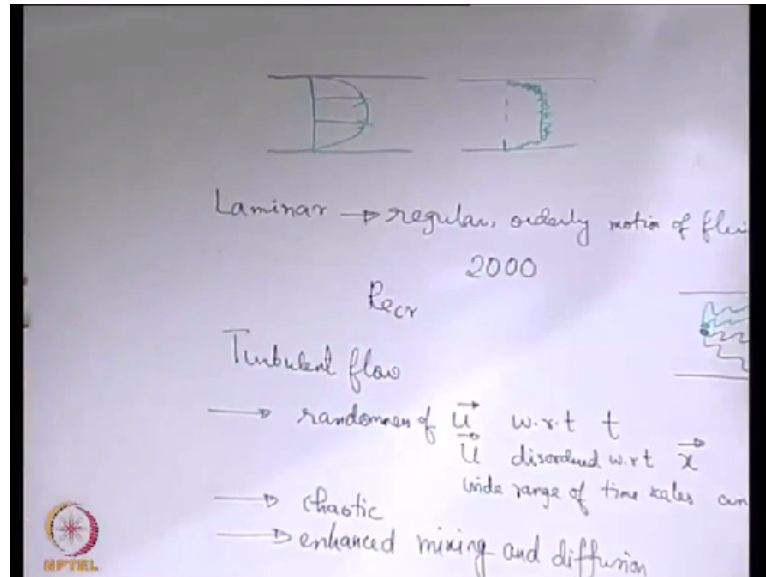 Laminar → regular, orderly motion of flui
2000
Recr
Turbulent flow
→ randomness of u w.r.t t
u disordered w.r.t x
wide range of time scales
→ chaotic
→ enhanced mixing and diffusion
NPTEL